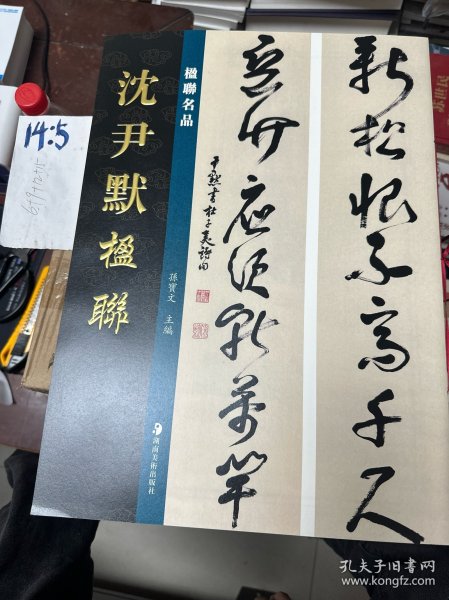 楹聯名品
沈尹默楹聯
孫寶文 主編
湖南美術出版社
新松恨不高千尺
惡竹應須斬萬竿
尹默書杜子美詩句
14:5
苏世民
孔夫子旧书网
www.kongfz.com